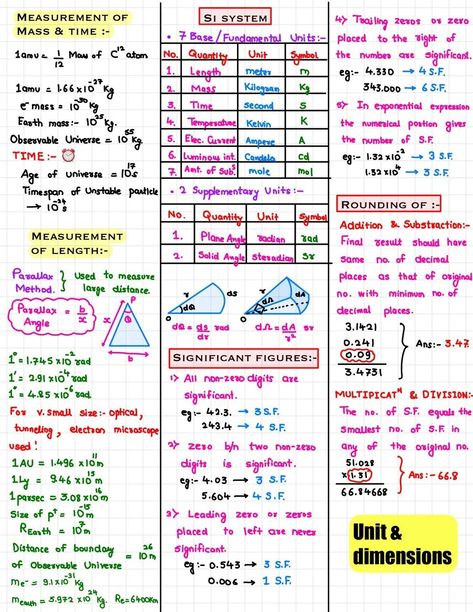 MEASUREMENT OF
MASS & TIME :-
1amu = 1/12 Mass of C¹² atom
1amu = 1.66 x 10⁻²⁷ Kg
e⁻ mass = 10⁻³⁰ Kg
Earth mass:- 10²⁵ Kg.
Observable Universe = 10⁵⁵ Kg
TIME :-
Age of universe = 10¹⁷ s
Timespan of Unstable particle
→ 10⁻²⁴ s
MEASUREMENT
OF LENGTH:-
Parallax Method. } Used to measure
large distance.
Parallax Angle = b/x
P
x
θ
b
1° = 1.745 x 10⁻² rad
1' = 2.91 x 10⁻⁴ rad
1" = 4.85 x 10⁻⁶ rad
For v. small size :- optical,
tunneling, electron microscope
used!
1AU = 1.496 x 10¹¹ m
1Ly = 9.46 x 10¹⁵ m
1parsec = 3.08 x 10¹⁶ m
Size of p⁺ = 10⁻¹⁵ m
R Earth = 10⁷ m
Distance of boundary = 10²⁶ m
of Observable Universe
me⁻ = 9.1 x 10⁻³¹ kg
mearth = 5.972 x 10²⁴ Kg. Re = 6400Km
SI SYSTEM
• 7 Base / Fundamental Units:-
No. Quantity Unit Symbol
1. Length meter m
2. Mass Kilogram Kg
3. Time second S
4. Temperature Kelvin K
5. Elec. Current Ampere A
6. Luminous int. Candela Cd
7. Amt. of Subs. mole mol
• 2 Supplementary Units:-
No. Quantity Unit Symbol
1. Plane Angle radian rad
2. Solid Angle steradian Sr
r
dθ
ds
r
dΩ
dA
dθ = ds/r rad
dΩ = dA/r² Sr
SIGNIFICANT FIGURES:-
1) All non-zero digits are
significant.
eg:- 42.3. → 3 S.F.
243.4 → 4 S.F.
2) zero b/n two non-zero
digits is significant.
eg:- 4.03 → 3 S.F.
5.604 → 4 S.F.
3) Leading zero or zeros
placed to left are never
significant.
eg:- 0.543 → 3 S.F.
0.006 → 1 S.F.
4) Trailing zeros or zero
placed to the right of
the number are significant.
eg:- 4.330 → 4 S.F.
343.000 → 6 S.F.
5) In exponential expression
the numerical portion gives
the number of S.F.
eg:- 1.32 x 10⁻² → 3 S.F.
1.32 x 10⁴ → 3 S.F.
ROUNDING OF :-
Addition & Substraction:-
Final result should have
same no. of decimal
places as that of original
no. with minimum no. of
decimal places.
3.1421
0.241
0.09
3.4731
Ans:- 3.47
MULTIPICATⁿ & DIVISION:-
The no. of S.F. equals the
smallest no. of S.F. in
any of the original no.
51.028
x 1.31
66.84668
Ans :- 66.8
Unit &
dimensions